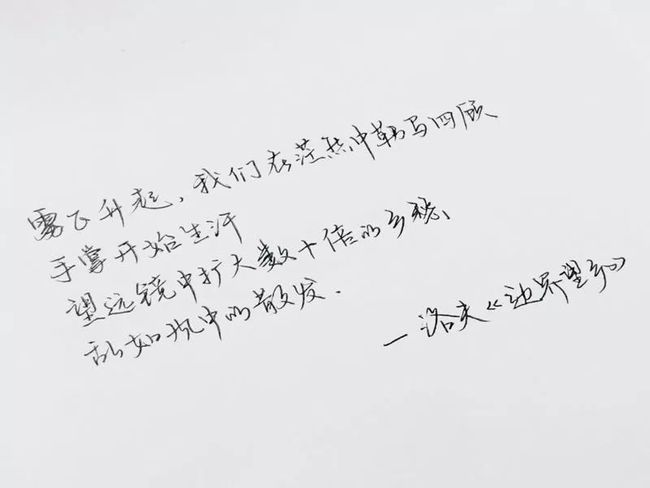 雾正升起，我们在茫然中勒马四顾
手掌开始生汗
望远镜中扩大数十倍的乡愁、
乱如风中的散发．
—洛夫《边界望乡》